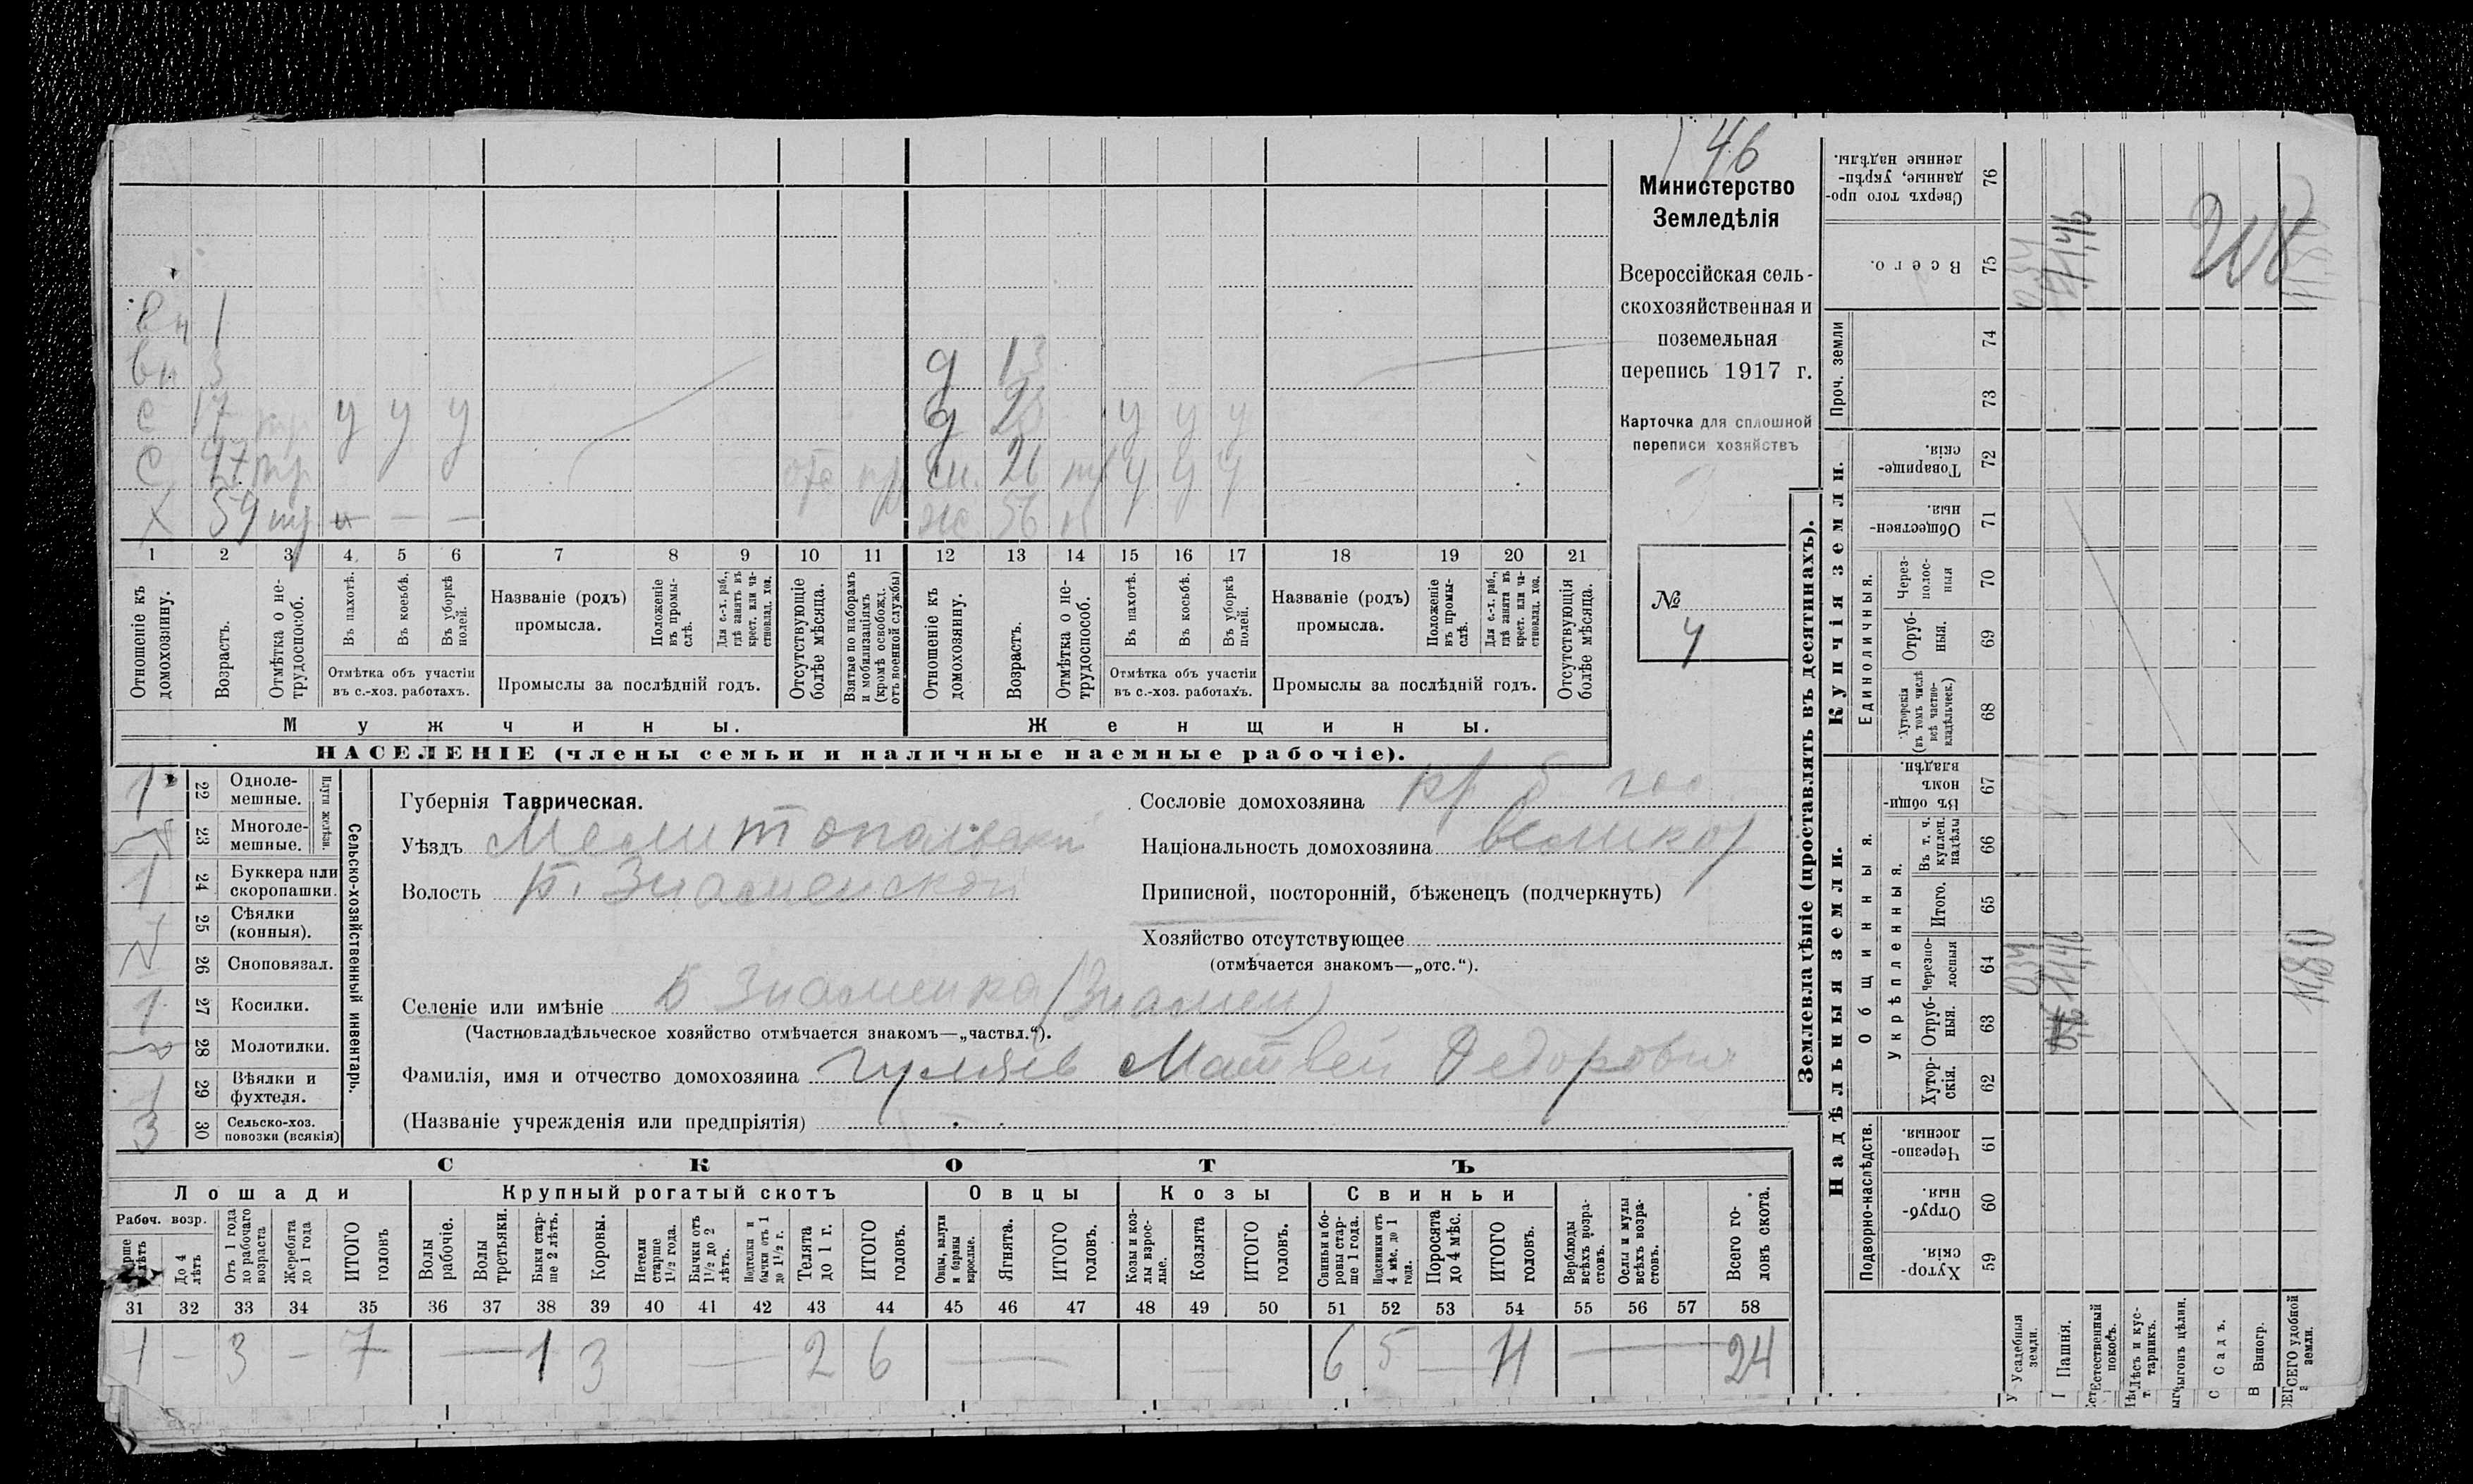 46
Министерство
Земледѣлія
Всероссійская сель-
скохозяйственная и
поземельная
перепись 1917 г.
Карточка для сплошной
переписи хозяйствъ
№
4
вн 1
вн 3 д 13
с 17 у у у д у у у
с тр сн. 26 у у у
х 59 — — ж 56
1 2 3 4 5 6 7 8 9 10 11 12 13 14 15 16 17 18 19 20 21
Отношеніе къ домохозяину.
Возрастъ.
Отмѣтка о не-трудоспособ.
Въ пахотѣ.
Въ косьбѣ.
Въ уборкѣ полей.
Отмѣтка объ участіи въ с.-хоз. работахъ.
Названіе (родъ) промысла.
Положеніе въ промы-слѣ.
Для с.-х. раб., гдѣ занятъ въ крест. или ча-стновлад. хоз.
Промыслы за послѣдній годъ.
Отсутствующіе болѣе мѣсяца.
Взятые по наборамъ и мобилизаціямъ (кромѣ освобожд. отъ военной службы)
Отношеніе къ домохозяину.
Возрастъ.
Отмѣтка о не-трудоспособ.
Въ пахотѣ.
Въ косьбѣ.
Въ уборкѣ полей.
Отмѣтка объ участіи въ с.-хоз. работахъ.
Названіе (родъ) промысла.
Положеніе въ промы-слѣ.
Для с.-х. раб., гдѣ занята въ крест. или ча-стновлад. хоз.
Промыслы за послѣдній годъ.
Отсутствующія болѣе мѣсяца.
Мужчины.
Женщины.
НАСЕЛЕНІЕ (члены семьи и наличные наемные рабочіе).
1 22 Одноле-мешные.
23 Многоле-мешные.
Плуги желѣзн.
1 24 Буккера или скоропашки.
25 Сѣялки (конныя).
26 Сноповязал.
1 27 Косилки.
28 Молотилки.
1 29 Вѣялки и фухтеля.
3 30 Сельско-хоз. повозки (всякія)
Сельско-хозяйственный инвентарь.
Губернія Таврическая.
Уѣздъ Мелитопольскій
Волость Б. Знаменской
Селеніе или имѣніе Б Знаменка (Знамен)
(Частновладѣльческое хозяйство отмѣчается знакомъ—„частвл.“).
Фамилія, имя и отчество домохозяина Гуляев Матвей Федорович
(Названіе учрежденія или предпріятія)
Сословіе домохозяина кр б гос
Національность домохозяина великор
Приписной, посторонній, бѣженецъ (подчеркнуть)
Хозяйство отсутствующее
(отмѣчается знакомъ—„отс.“).
СКОТЪ
Лошади
Крупный рогатый скотъ
Овцы
Козы
Свиньи
Рабоч. возр.
До 4 лѣтъ
Отъ 1 года до рабочаго возраста
Жеребята до 1 года
ИТОГО головъ
Волы рабочіе.
Волы третьяки.
Быки стар-ше 2 лѣтъ.
Коровы.
Нетели старше 1½ года.
Бычки отъ 1½ до 2 лѣтъ.
Подтелки и бычки отъ 1 до 1½ г.
Телята до 1 г.
ИТОГО головъ.
Овцы, валухи и бараны взрослые.
Ягнята.
ИТОГО головъ.
Козы и коз-лы взрос-лые.
Козлята
ИТОГО головъ.
Свиньи и бо-ровы стар-ше 1 года.
Подсвинки отъ 4 мѣс. до 1 года.
Поросята до 4 мѣс.
ИТОГО головъ.
Верблюды всѣхъ возра-стовъ.
Ослы и мулы всѣхъ возра-стовъ.
Всего го-ловъ скота.
31 32 33 34 35 36 37 38 39 40 41 42 43 44 45 46 47 48 49 50 51 52 53 54 55 56 57 58
— 3 — 7 — 1 3 — 2 6 — — 6 5 — 11 — 24
Землевладѣніе (проставлять въ десятинахъ).
Надѣльныя земли.
Купчія земли.
Проч. земли
Подворно-наслѣдств.
Общинныя.
Укрѣпленныя.
Единоличныя.
Хутор-скія. 59
Отруб-ныя. 60
Черезпо-лосныя. 61
Хутор-скія. 62
Отруб-ныя. 63
Черезпо-лосныя 64
Итого. 65
Въ т. ч. куплен. надѣлы 66
Въ общи-номъ владѣн. 67
Хуторскія (въ томъ числѣ всѣ частно-владѣльческ.) 68
Отруб-ныя. 69
Через-полос-ныя 70
Обществен-ныя. 71
Товарище-скія. 72
73
74
Всего. 75
Сверхъ того про-данные, укрѣп-ленные надѣлы. 76
Усадебныя земли.
Пашня.
Естественный покосъ.
Лѣсъ и кус-тарникъ.
Садъ.
Виногр.
ВСЕГО удобной земли.
0,34
11,46
11,80
0,34
11,46
208